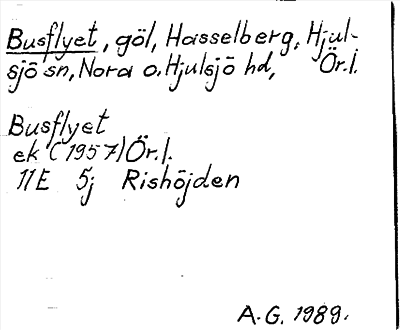 Busflyet, göl, Hasselberg, Hjul-
sjö sn, Nora o. Hjulsjö hd, Ör.l.
Busflyet
ek (1957) Ör.l.
11E 5j Rishöjden
A.G. 1989.